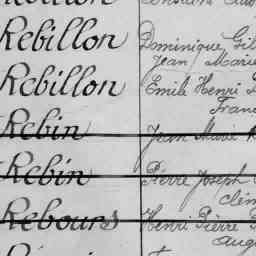 Rebillon Dominique, Gil
Jean Marie
Rebillon Emile Henri
Franc
Rebin Jean Marie
Rebin Pierre Joseph
Clém
Rebours Henri Pierre
Aug